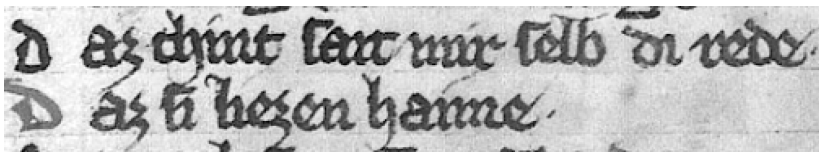 D az chint ſait mir ſelb di rede.
D az ſi liezen haime.